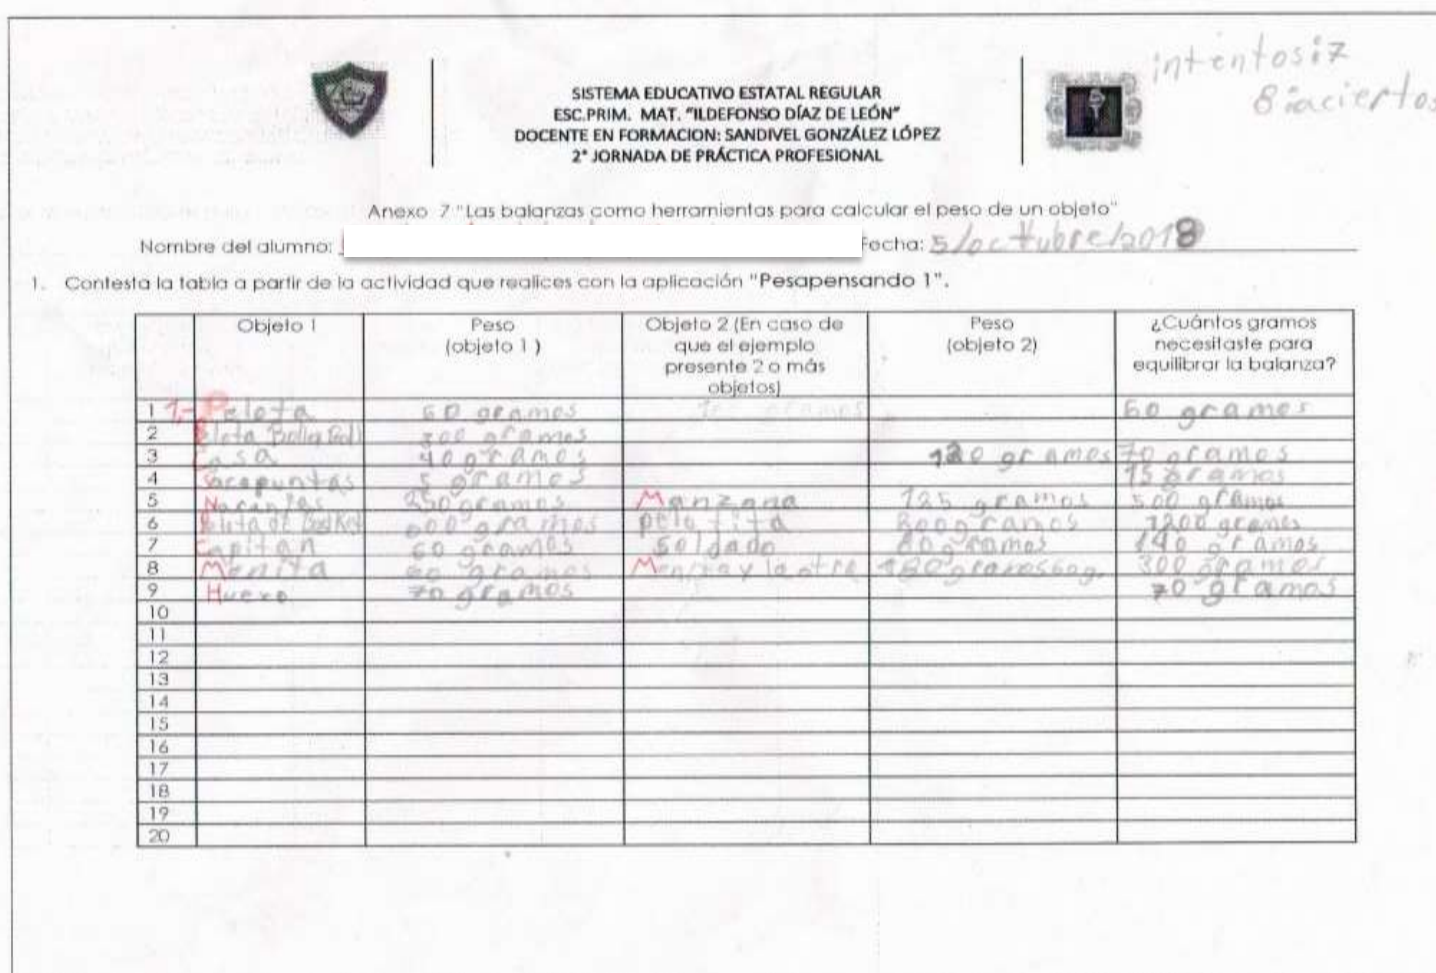 intentos:7
8:aciertos
SISTEMA EDUCATIVO ESTATAL REGULAR
ESC.PRIM. MAT. "ILDEFONSO DÍAZ DE LEÓN"
DOCENTE EN FORMACION: SANDIVEL GONZÁLEZ LÓPEZ
2° JORNADA DE PRÁCTICA PROFESIONAL
Anexo 7 "Las balanzas como herramientas para calcular el peso de un objeto"
Nombre del alumno: Fecha: 5/octubre/2018
1. Contesta la tabla a partir de la actividad que realices con la aplicación "Pesapensando 1".
Objeto 1 Peso (objeto 1 ) Objeto 2 (En caso de que el ejemplo presente 2 o más objetos) Peso (objeto 2) ¿Cuántos gramos necesitaste para equilibrar la balanza?
1 1.- Pelota 60 gramos gramos 60 gramos
2 300 gramos
3 40 gramos 120 gramos 70 gramos
4 Sacapuntas 5 gramos 15 gramos
5 Naranjas 250 gramos Manzana 125 gramos 500 gramos
6 de gramos pelotita 800 gramos 1200 gramos
7 Capitan 60 gramos Soldado 80 gramos 140 gramos
8 Menita gramos y la otra 300 gramos
9 Huevo 70 gramos 70 gramos
10
11
12
13
14
15
16
17
18
19
20